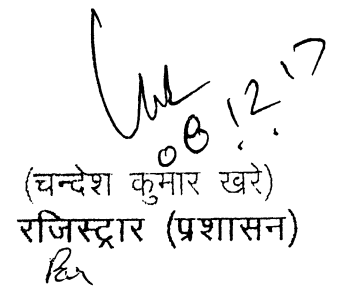 08.12.17
(चन्देश कुमार खरे)
रजिस्ट्रार (प्रशासन)